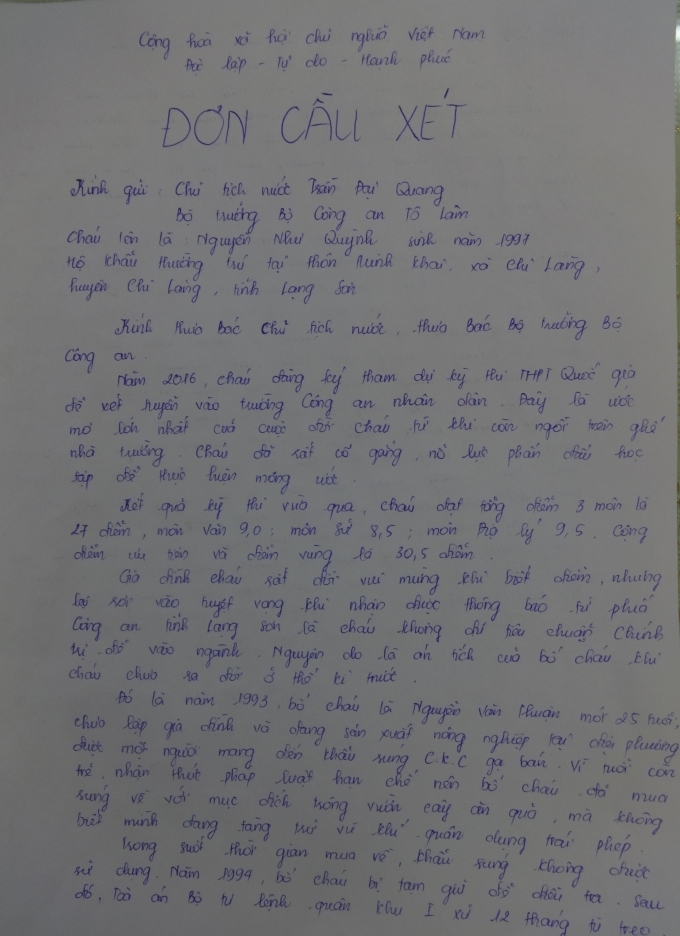 Cộng hoà xã hội chủ nghĩa Việt Nam
Độc lập - Tự do - Hạnh phúc
ĐƠN CẦU XÉT
Kính gửi : Chủ tịch nước Trần Đại Quang
Bộ trưởng Bộ Công an Tô Lâm
Cháu tên là : Nguyễn Như Quỳnh sinh năm 1997
Hộ khẩu thường trú tại thôn Minh Khai, xã Chi Lăng,
huyện Chi Lăng, tỉnh Lạng Sơn
Kính thưa Bác Chủ tịch nước, thưa Bác Bộ trưởng Bộ
Công an.
Năm 2016, cháu đăng ký tham dự kỳ thi THPT Quốc gia
để xét tuyển vào trường Công an nhân dân. Đây là ước
mơ lớn nhất của cuộc đời cháu từ khi còn ngồi trên ghế
nhà trường. Cháu đã rất cố gắng, nỗ lực phấn đấu học
tập để thực hiện mong ước.
Kết quả kỳ thi vừa qua, cháu đạt tổng điểm 3 môn là
27 điểm, môn văn 9,0 ; môn sử 8,5 ; môn Địa lý 9,5. Cộng
điểm ưu tiên và điểm vùng là 30,5 điểm.
Gia đình cháu rất đỗi vui mừng khi biết điểm, nhưng
lại rơi vào tuyệt vọng khi nhận được thông báo từ phía
Công an tỉnh Lạng Sơn là cháu không đủ tiêu chuẩn Chính
trị để vào ngành. Nguyên do là án tích của bố cháu khi
cháu chưa ra đời ở thế kỉ trước.
Đó là năm 1993, bố cháu là Nguyễn Văn Thuận mới 25 tuổi,
chưa lập gia đình và đang sản xuất nông nghiệp tại địa phương
được một người mang đến khẩu súng C.K.C gạ bán. Vì tuổi còn
trẻ, nhận thức pháp luật hạn chế nên bố cháu đã mua
súng về với mục đích trông vườn cây ăn quả, mà không
biết mình đang tàng trữ vũ khí quân dụng trái phép.
Trong suốt thời gian mua về, khẩu súng không được
sử dụng. Năm 1994, bố cháu bị tạm giữ để điều tra. Sau
đó, Toà án Bộ tư lệnh quân khu I xử 12 tháng tù treo.